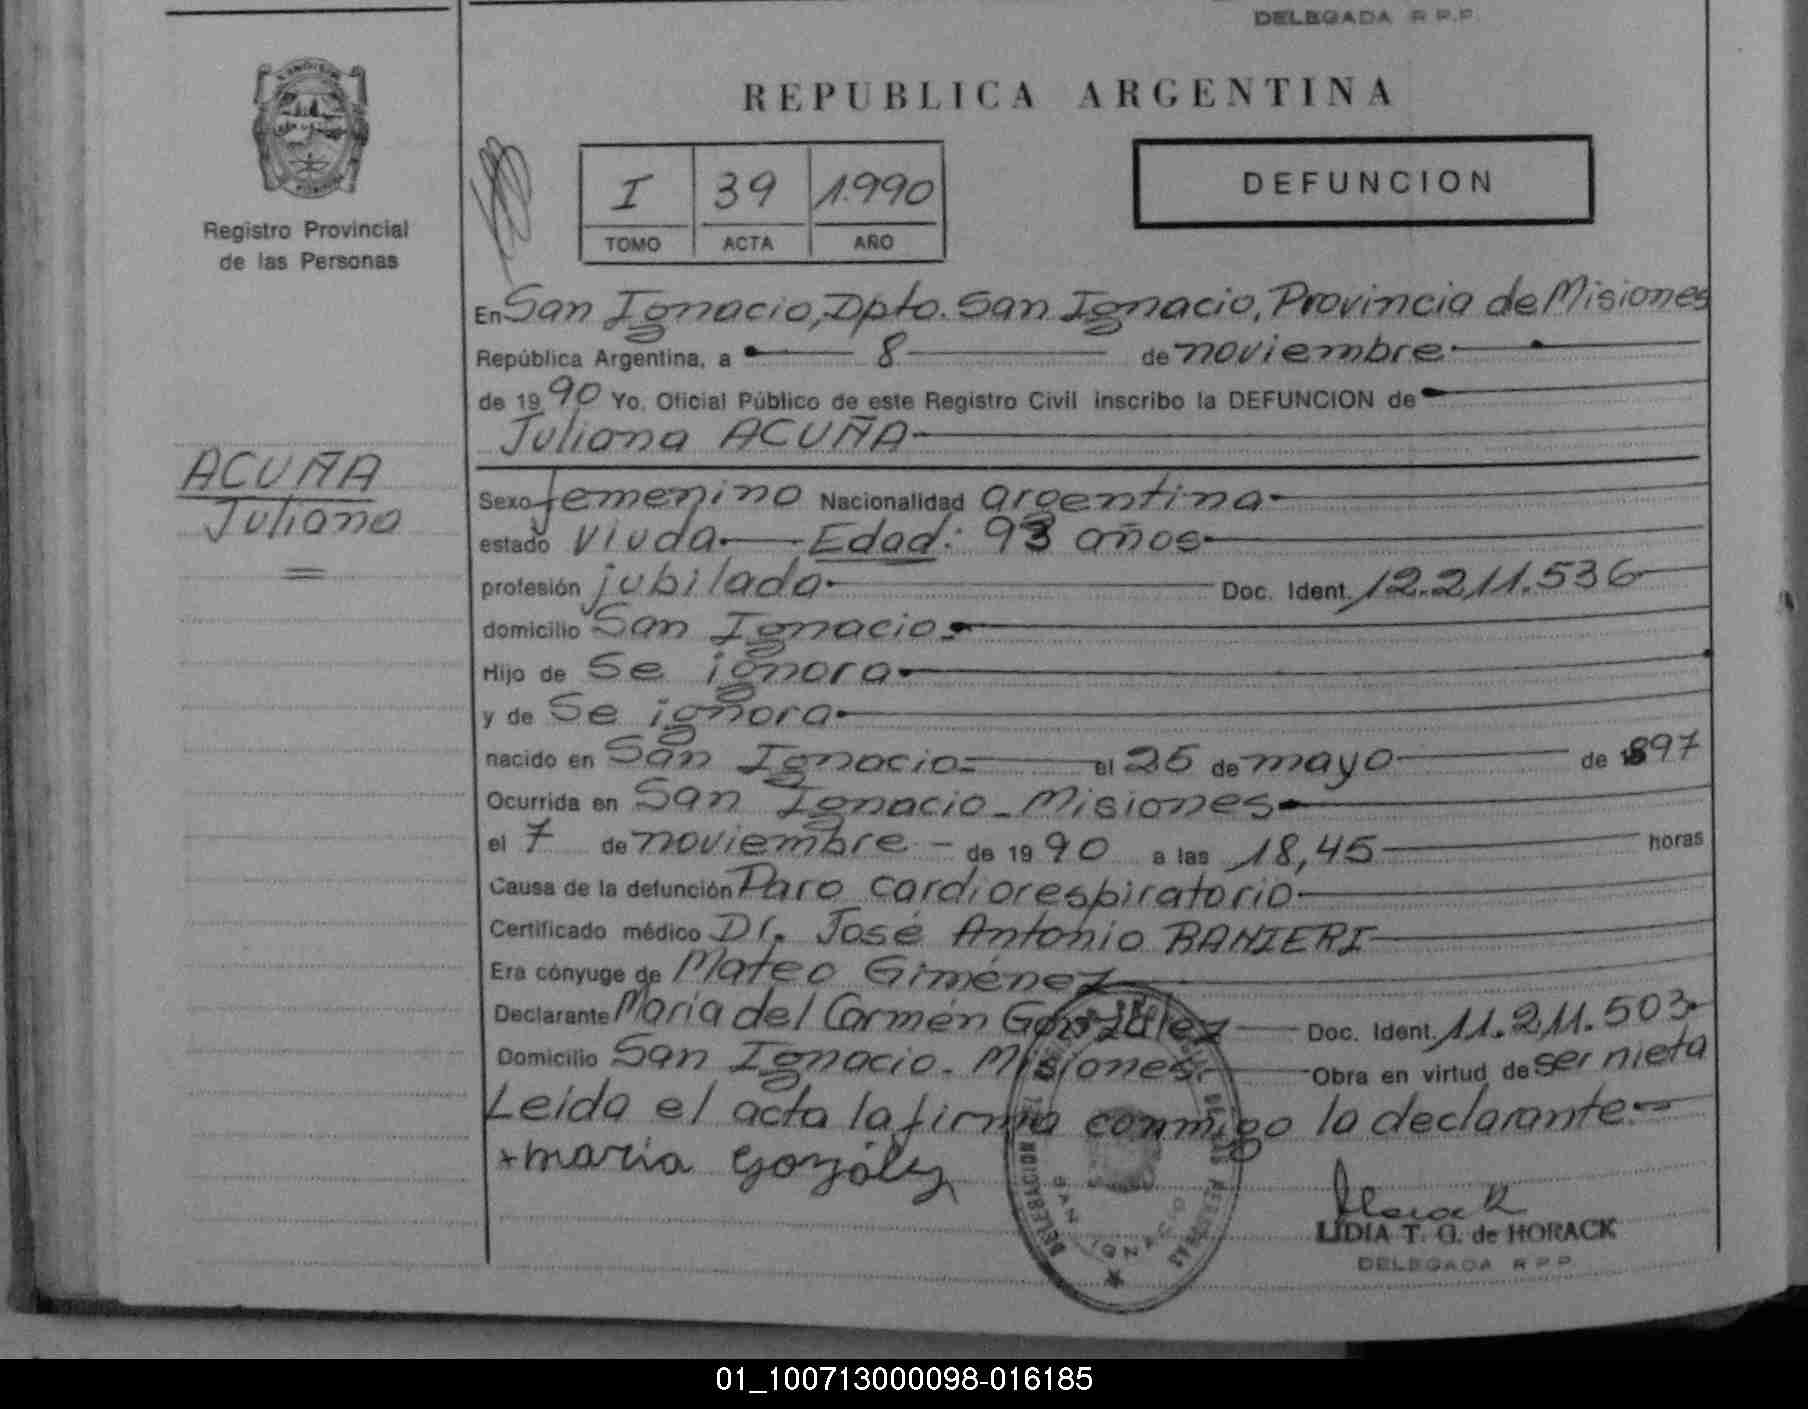 DELEGADA R.P.P.
REPUBLICA ARGENTINA
Registro Provincial
de las Personas
I 39 1.990
TOMO ACTA AÑO
DEFUNCION
En San Ignacio, Dpto. San Ignacio, Provincia de Misiones
República Argentina, a 8 de noviembre
de 1990 Yo, Oficial Público de este Registro Civil inscribo la DEFUNCION de
Juliana ACUÑA
ACUÑA
Juliana
Sexo femenino Nacionalidad argentina
estado viuda Edad: 93 años
profesión jubilada Doc. Ident. 12.211.536
domicilio San Ignacio
Hijo de Se ignora
y de Se ignora
nacido en San Ignacio el 25 de mayo de 1897
Ocurrida en San Ignacio - Misiones
el 7 de noviembre - de 1990 a las 18,45 horas
Causa de la defunción Paro cardiorespiratorio
Certificado médico Dr. José Antonio RANIERI
Era cónyuge de Mateo Giménez
Declarante María del Carmen González Doc. Ident. 11.211.503
Domicilio San Ignacio - Misiones Obra en virtud de ser nieta
Leída el acta la firma conmigo la declarante
+ maria Gozález
LIDIA T. G. de HORACK
DELEGADA R P P
01_100713000098-016185